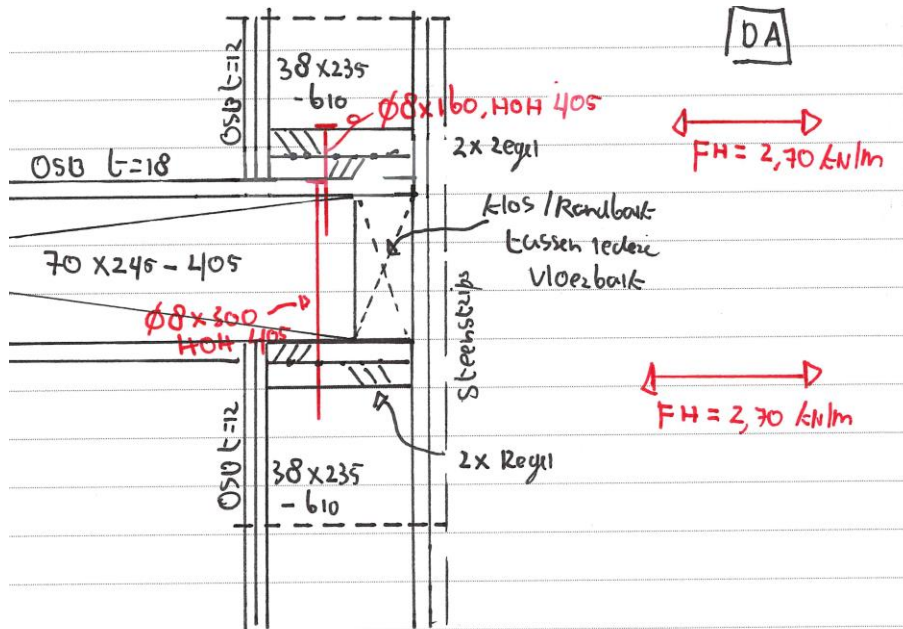 DA
OSB t=12
38x235
-610
Ø8x160, HOH 405
FH = 2,70 kN/m
2x regel
OSB t=18
klos / Randbalk
tussen iedere
vloerbalk
70 x 245 - 405
Ø8 x 300
HOH 405
Steenstrips
FH = 2,70 kN/m
OSB t=12
38x235
- 610
2x Regel